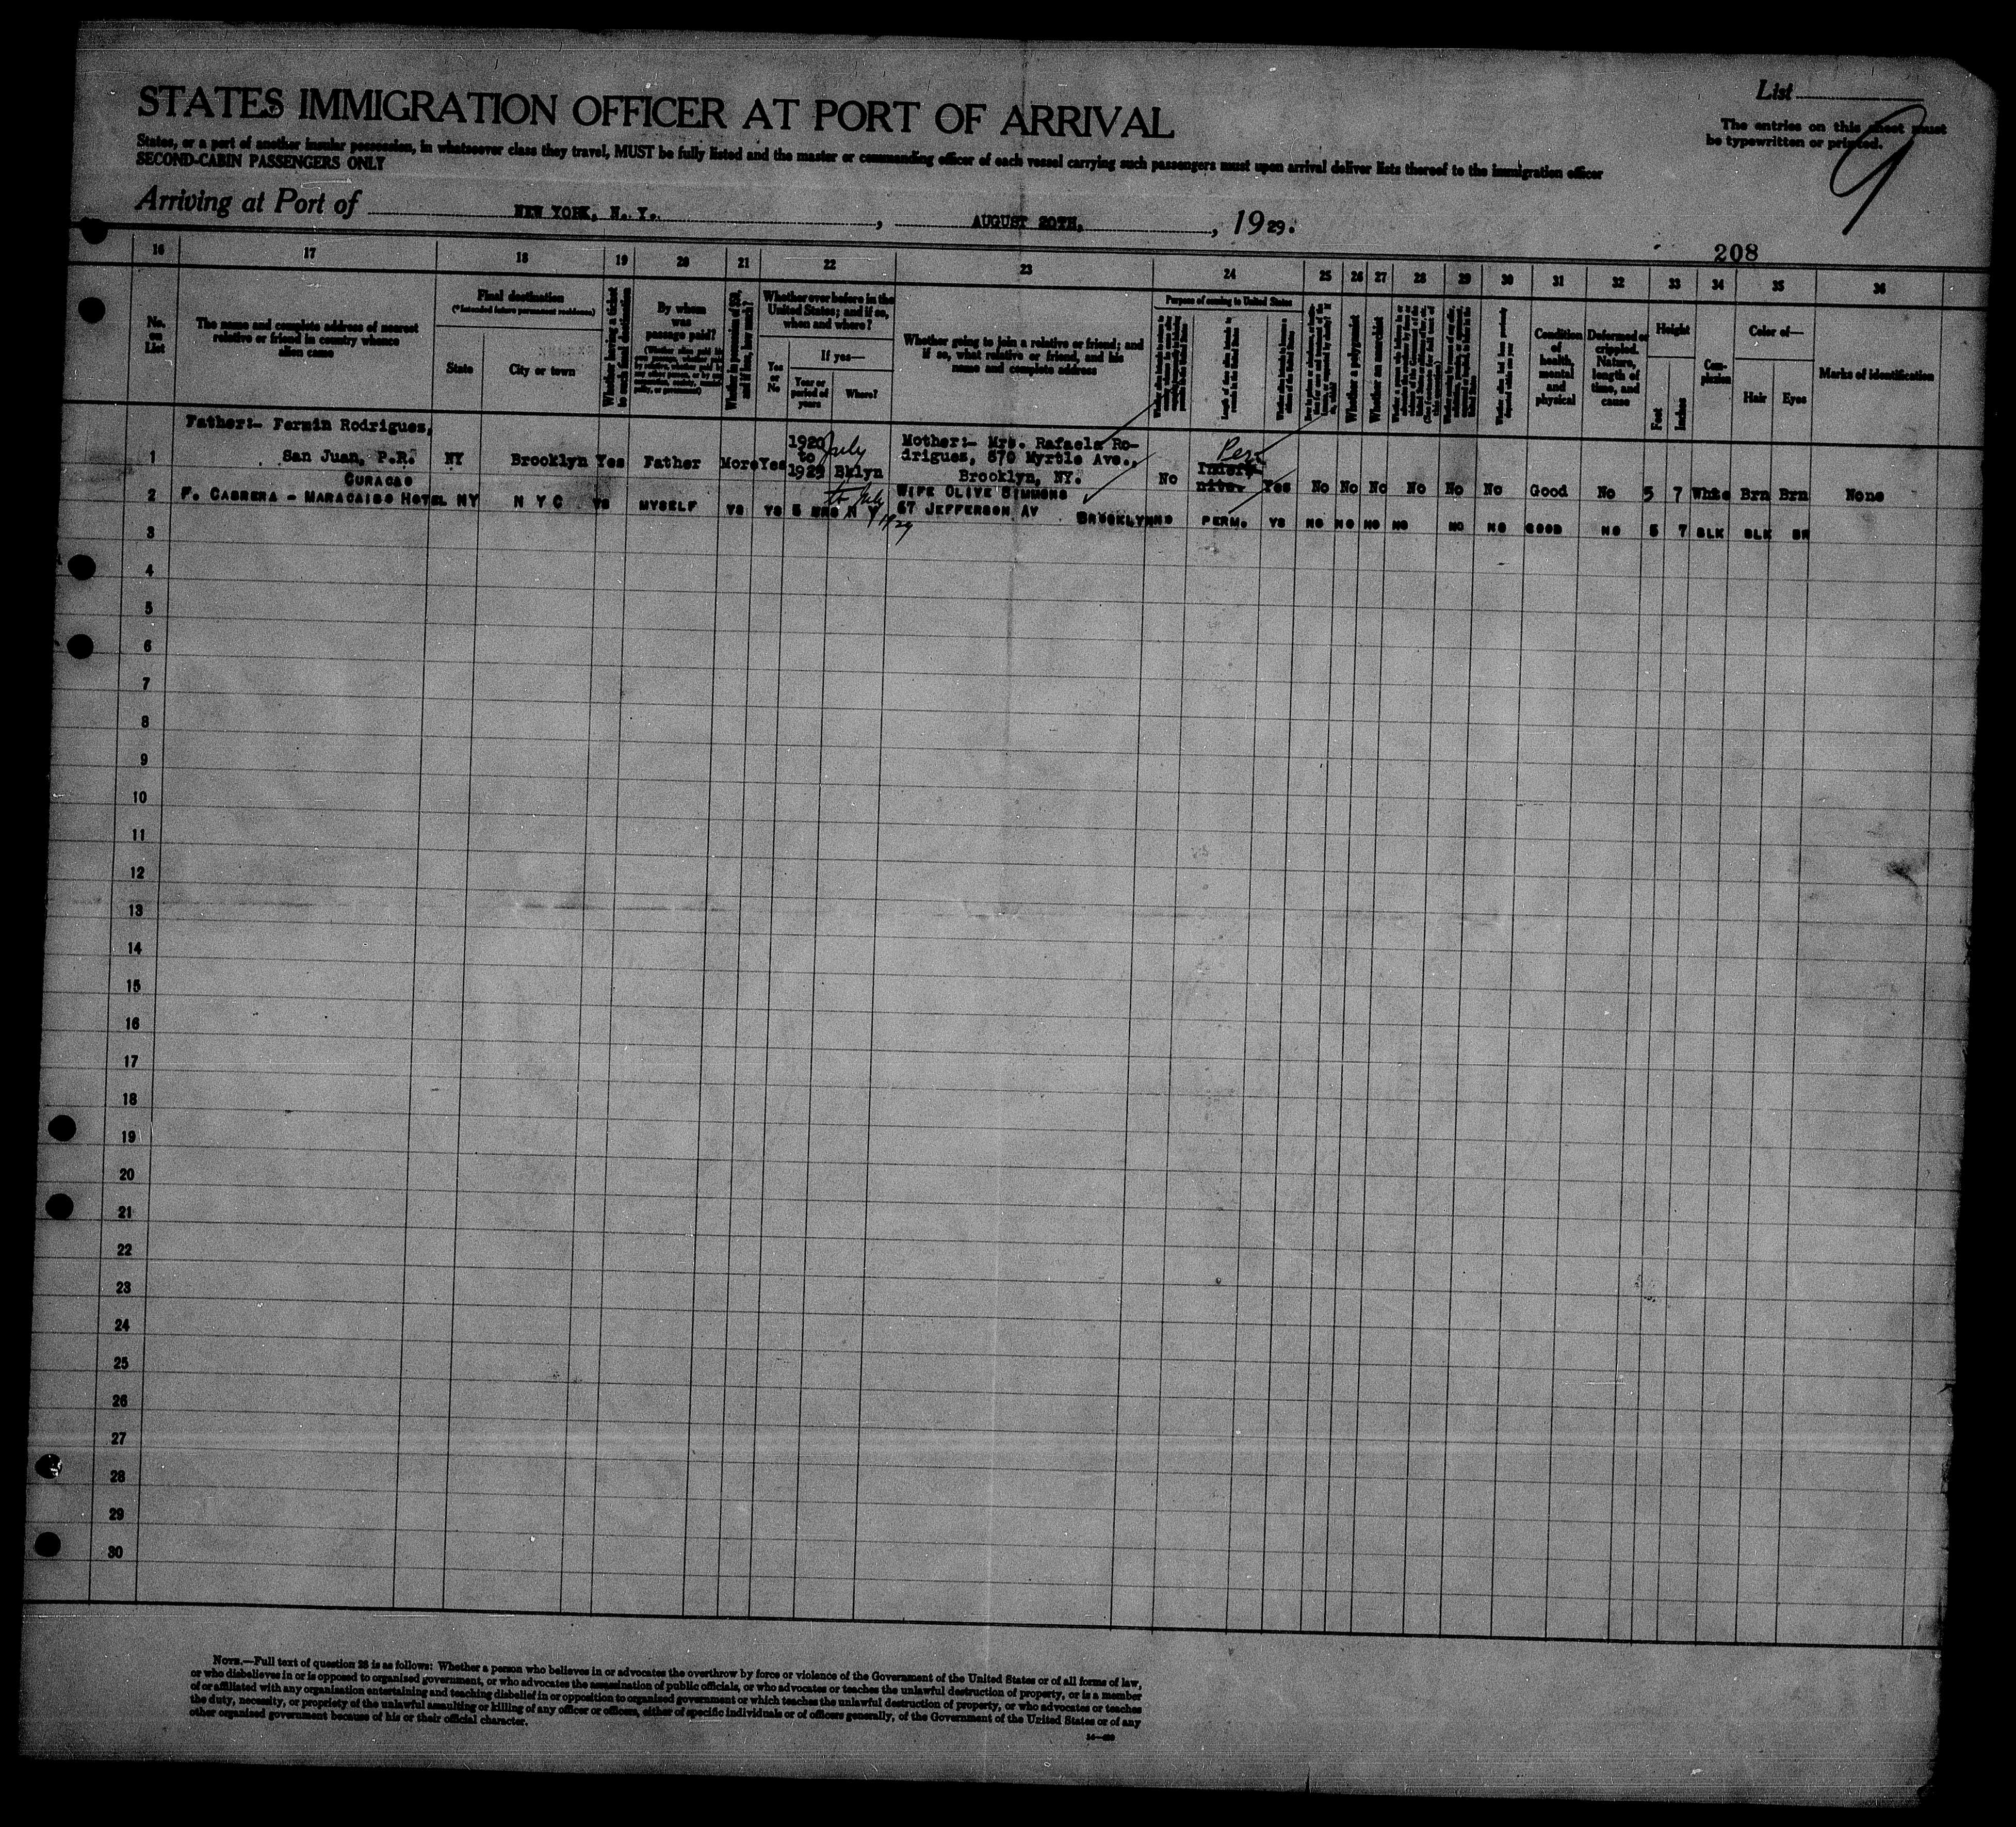 STATES IMMIGRATION OFFICER AT PORT OF ARRIVAL
List
The entries on this sheet must
be typewritten or printed.
9
States, or a part of another insular possession, in whatsoever class they travel, MUST be fully listed and the master or commanding officer of each vessel carrying such passengers must upon arrival deliver lists thereof to the immigration officer
SECOND-CABIN PASSENGERS ONLY
Arriving at Port of NEW YORK, N. Y. , AUGUST 20TH, , 1929.
208
16 17 18 19 20 21 22 23 24 25 26 27 28 29 30 31 32 33 34 35 36
No. on List
The name and complete address of nearest relative or friend in country whence alien came
Final destination
(*Intended future permanent residence)
State
City or town
Whether having a ticket to such final destination
By whom was passage paid?
Whether in possession of $50, and if less, how much?
Whether ever before in the United States; and if so, when and where?
Yes or No
If yes—
Year or period of years
Where?
Whether going to join a relative or friend; and if so, what relative or friend, and his name and complete address
Purpose of coming to United States
Length of time alien intends to remain in the United States
Whether a polygamist
Whether an anarchist
Condition of health, mental and physical
Deformed or crippled. Nature, length of time, and cause
Height
Feet
Inches
Complexion
Color of—
Hair
Eyes
Marks of identification
1 Father:- Fermin Rodrigues,
San Juan, P.R. NY Brooklyn Yes Father More Yes 1920 to 1929 July Bklyn Mother:- Mrs. Rafaela Ro-
drigues, 570 Myrtle Ave.,
Brooklyn, NY. No Indefi-
nite. Per Yes No No No No No No Good No 5 7 White Brn Brn None
CURACAO
2 F. CABRERA - MARACAIBO HOTEL NY N Y C YS MYSELF YS YS 5 YRS N Y to July 1929 WIFE OLIVE SIMMONS
67 JEFFERSON AV BROOKLYN NO PERM. YS NO NO NO NO NO NO GOOD NO 5 7 BLK BLK BR
3
4
5
6
7
8
9
10
11
12
13
14
15
16
17
18
19
20
21
22
23
24
25
26
27
28
29
30
NOTE.—Full text of question 28 is as follows: Whether a person who believes in or advocates the overthrow by force or violence of the Government of the United States or of all forms of law,
or who disbelieves in or is opposed to organized government, or who advocates the assassination of public officials, or who advocates or teaches the unlawful destruction of property, or is a member
of or affiliated with any organization entertaining and teaching disbelief in or opposition to organized government or which teaches the unlawful destruction of property, or who advocates or teaches
the duty, necessity, or propriety of the unlawful assaulting or killing of any officer or officers, either of specific individuals or of officers generally, of the Government of the United States or of any
other organized government because of his or their official character.